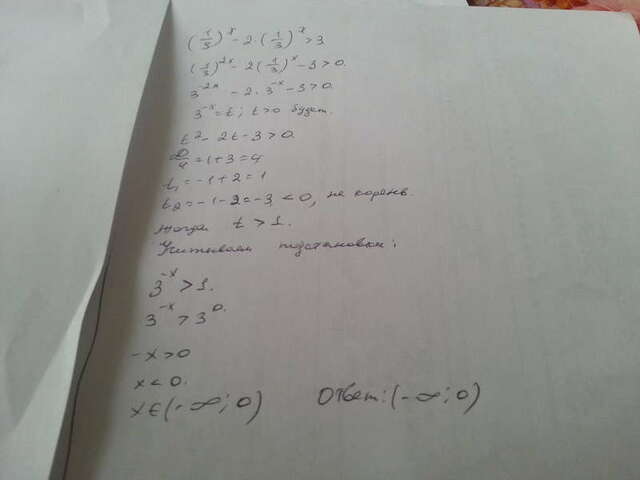 (1/3)^x - 2·(1/3)^x > 3
(1/3)^2x - 2(1/3)^x - 3 > 0.
3^-2x - 2·3^-x - 3 > 0.
3^-x = t; t > 0 будет.
t² - 2t - 3 > 0.
D/4 = 1 + 3 = 4
t₁ = -1 + 2 = 1
t₂ = -1 - 2 = -3 < 0, не корень.
Тогда t > 1.
Учитываем подстановки:
3^-x > 1.
3^-x > 3^0.
-x > 0
x < 0.
x ∈ (-∞; 0) Ответ: (-∞; 0)